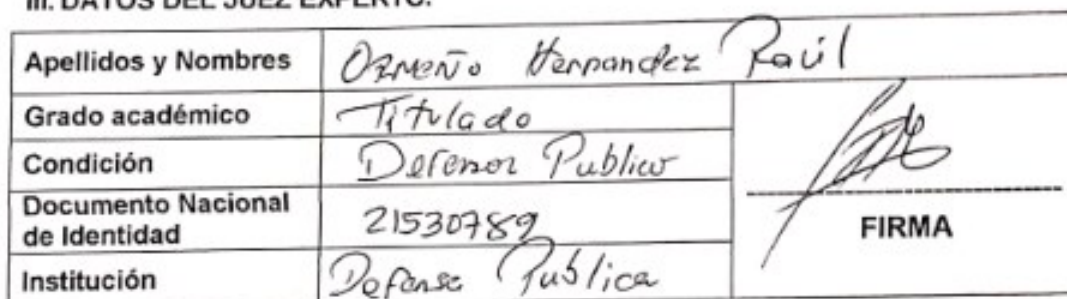 III. DATOS DEL JUEZ EXPERTO:
Apellidos y Nombres Ormeño Hernandez Raúl
Grado académico Titulado
Condición Defensor Publico
Documento Nacional
de Identidad 21530789
FIRMA
Institución Defensa Publica